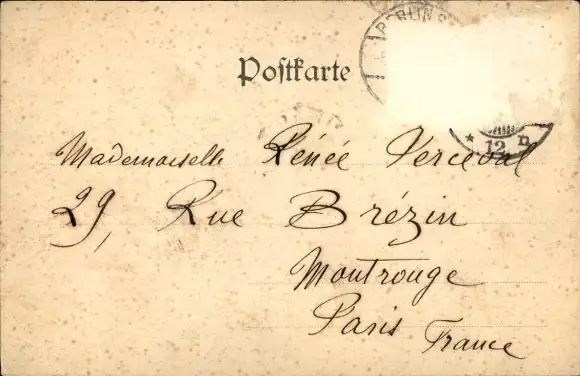 BERLIN S
Postkarte
12 n
Mademoiselle Renée Perceval
29, Rue Brézin
Montrouge
Paris France